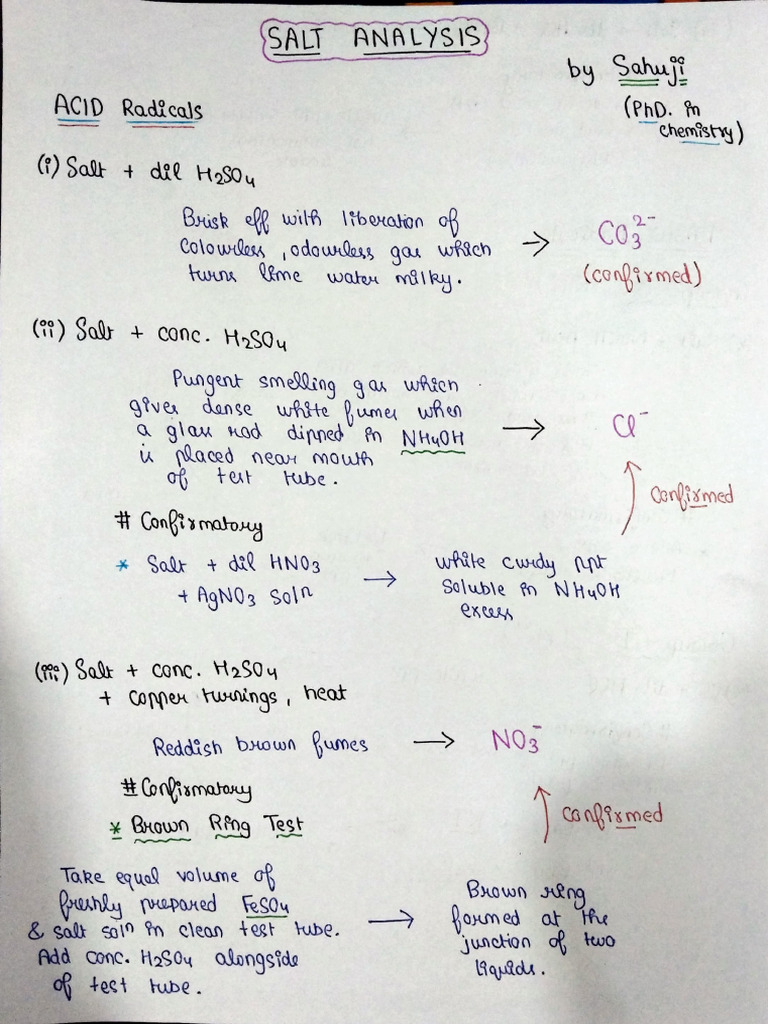 SALT ANALYSIS
by Sahuji
(PhD. in
chemistry)
ACID Radicals
(i) Salt + dil H₂SO₄
Brisk eff with liberation of
colourless, odourless gas which
turns lime water milky.
→ CO₃²⁻
(confirmed)
(ii) Salt + conc. H₂SO₄
Pungent smelling gas which
gives dense white fumes when
a glass rod dipped in NH₄OH
is placed near mouth
of test tube.
→ Cl⁻
confirmed
# Confirmatory
* Salt + dil HNO₃
+ AgNO₃ solⁿ
→ white curdy ppt
soluble in NH₄OH
excess
(iii) Salt + conc. H₂SO₄
+ copper turnings, heat
Reddish brown fumes → NO₃⁻
# Confirmatory
confirmed
* Brown Ring Test
Take equal volume of
freshly prepared FeSO₄
& salt solⁿ in clean test tube.
Add conc. H₂SO₄ alongside
of test tube.
→ Brown ring
formed at the
junction of two
liquids.